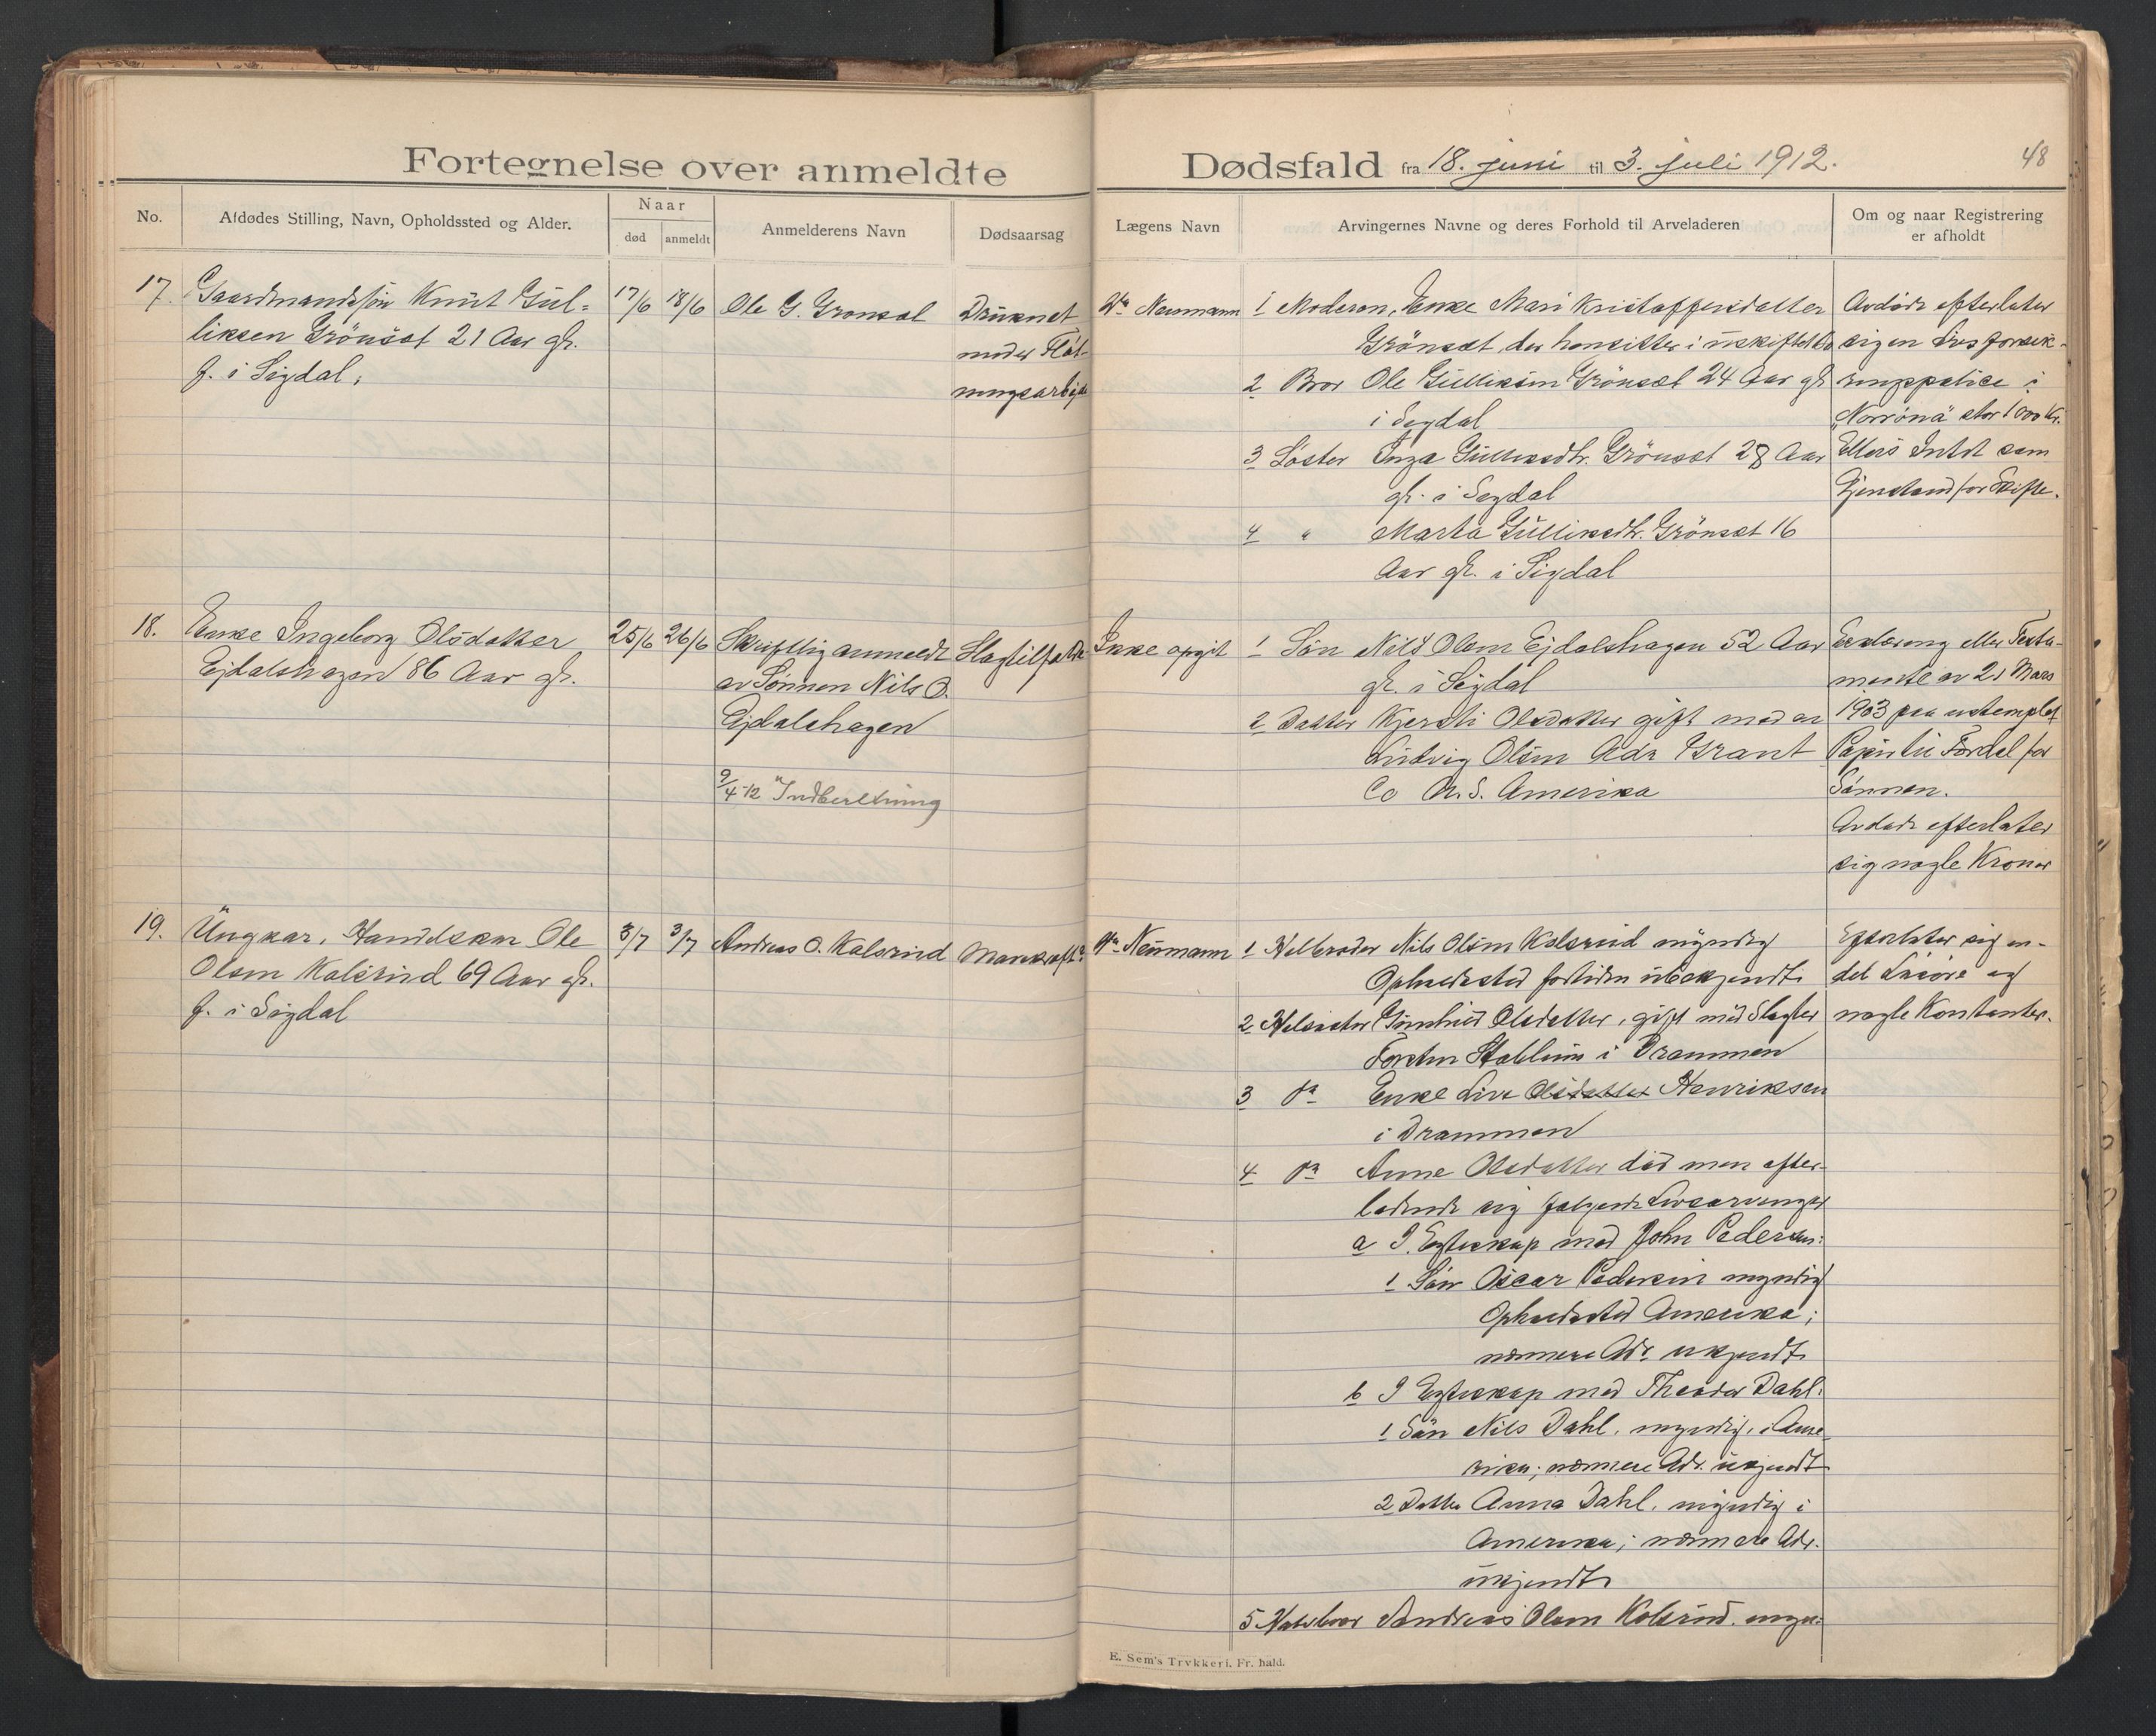 Fortegnelse over anmeldte
Dødsfald fra 18. juni til 3. juli 1912.
48
No.
Afdødes Stilling, Navn, Opholdssted og Alder.
Naar
død
anmeldt
Anmelderens Navn
Dødsaarsag
Lægens Navn
Arvingernes Navne og deres Forhold til Arveladeren
Om og naar Registrering
er afholdt
17.
Gaardmandssøn Knut Gul-
liksen Grönset 21 Aar gl.
f. i Sigdal.
17/6
18/6
Ole G. Gronsal
Druknet
under Fløt-
ningsarbejde
Dr. Neumann
1 Moderen, Enke Mari Kristoffersdatter
Grönset, der hensitter i uskiftet Bo
2 Bror Ole Gulliksen Grönset 24 Aar gl.
i Sigdal
3 Søster Inga Gulliksdtr. Grönset 28 Aar
gl. i Sigdal
4 " Marta Gulliksdtr. Grönset 16
Aar gl. i Sigdal
Avdøde efterlater
sig en Livsforsik-
ringspolice i
"Norröna" stor 1000 Kr.
Ellers Intet som
Gjenstand for Skifte.
18.
Enke Ingeborg Olsdatter
Ejdalshagen 86 Aar gl.
25/6
26/6
Skriftlig anmeldt
av Sønnen Nils O.
Ejdalshagen
9/4-12 Indberetning
Slagtilfælde
Ikke opgit
1 Søn Nils Olsen Ejdalshagen 52 Aar
gl. i Sigdal
2 Datter Kjersti Olsdatter gift med en
Ludvig Olsen Adr Grant
Co Amerika
Erklæring eller Testa-
mente av 21 Mars
1903 paa ustemplet
Papir til Fordel for
Sønnen.
Avdøde efterlater
sig nogle Kroner
19.
Ungkar, Handelsm Ole
Olsen Kolsrud 69 Aar gl.
f. i Sigdal
3/7
3/7
Andreas O. Kolsrud
Dr. Neumann
1 Helbroder Nils Olsen Kolsrud myndig
Opholdssted for tiden ubekjendt
2 Helsøster Gunhild Olsdatter, gift med Slagter
i Drammen
3 Do Enke Live Olsdatter Henriksen
i Drammen
4 Do Anne Olsdatter død men efter-
ladende sig følgende Livsarvinger
a I Egteskap med John Pedersen:
1 Søn Oscar Pedersen myndig
Opholdssted Amerika;
nærmere Adr. ukjendt
b I Egteskap med Theodor Dahl:
1 Søn Nils Dahl, myndig, i Ame-
rika; nærmere Adr. ukjendt
2 Datter Anna Dahl, myndig i
Amerika; nærmere Adr.
ukjendt
5 Halvbror Andreas Olsen Kolsrud, myn-
Efterlater sig en-
del Løsøre og
nogle Kontanter.
E. Sem's Trykkeri, Fr.hald.